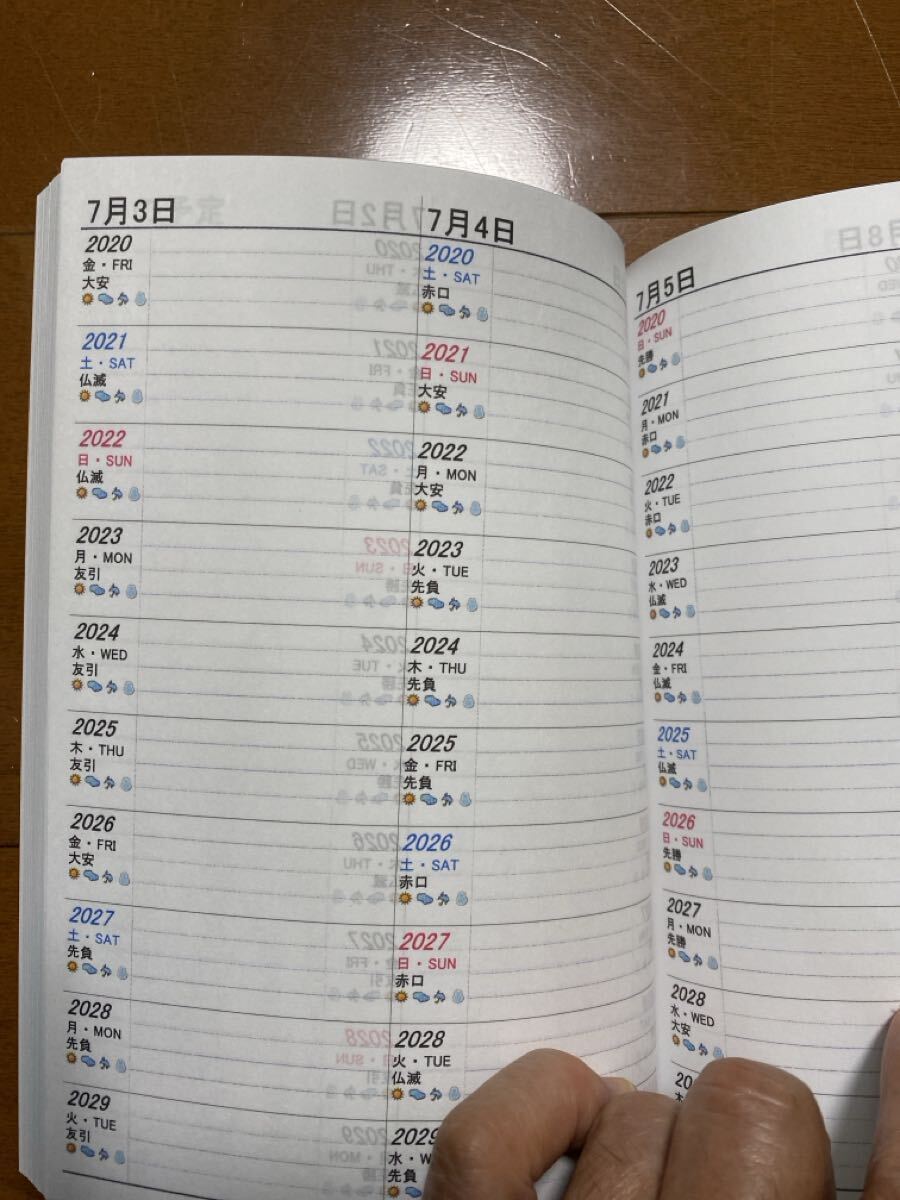 7月3日
2020
金・FRI
大安
2021
土・SAT
仏滅
2022
日・SUN
仏滅
2023
月・MON
友引
2024
水・WED
友引
2025
木・THU
友引
2026
金・FRI
大安
2027
土・SAT
先負
2028
月・MON
先負
2029
火・TUE
友引
7月4日
2020
土・SAT
赤口
2021
日・SUN
大安
2022
月・MON
大安
2023
火・TUE
先負
2024
木・THU
先負
2025
金・FRI
先負
2026
土・SAT
赤口
2027
日・SUN
赤口
2028
火・TUE
仏滅
2029
水・W
先負
7月5日
2020
日・SUN
先勝
2021
月・MON
赤口
2022
火・TUE
赤口
2023
水・WED
仏滅
2024
金・FRI
仏滅
2025
土・SAT
仏滅
2026
日・SUN
先勝
2027
月・MON
先勝
2028
水・WED
大安
20